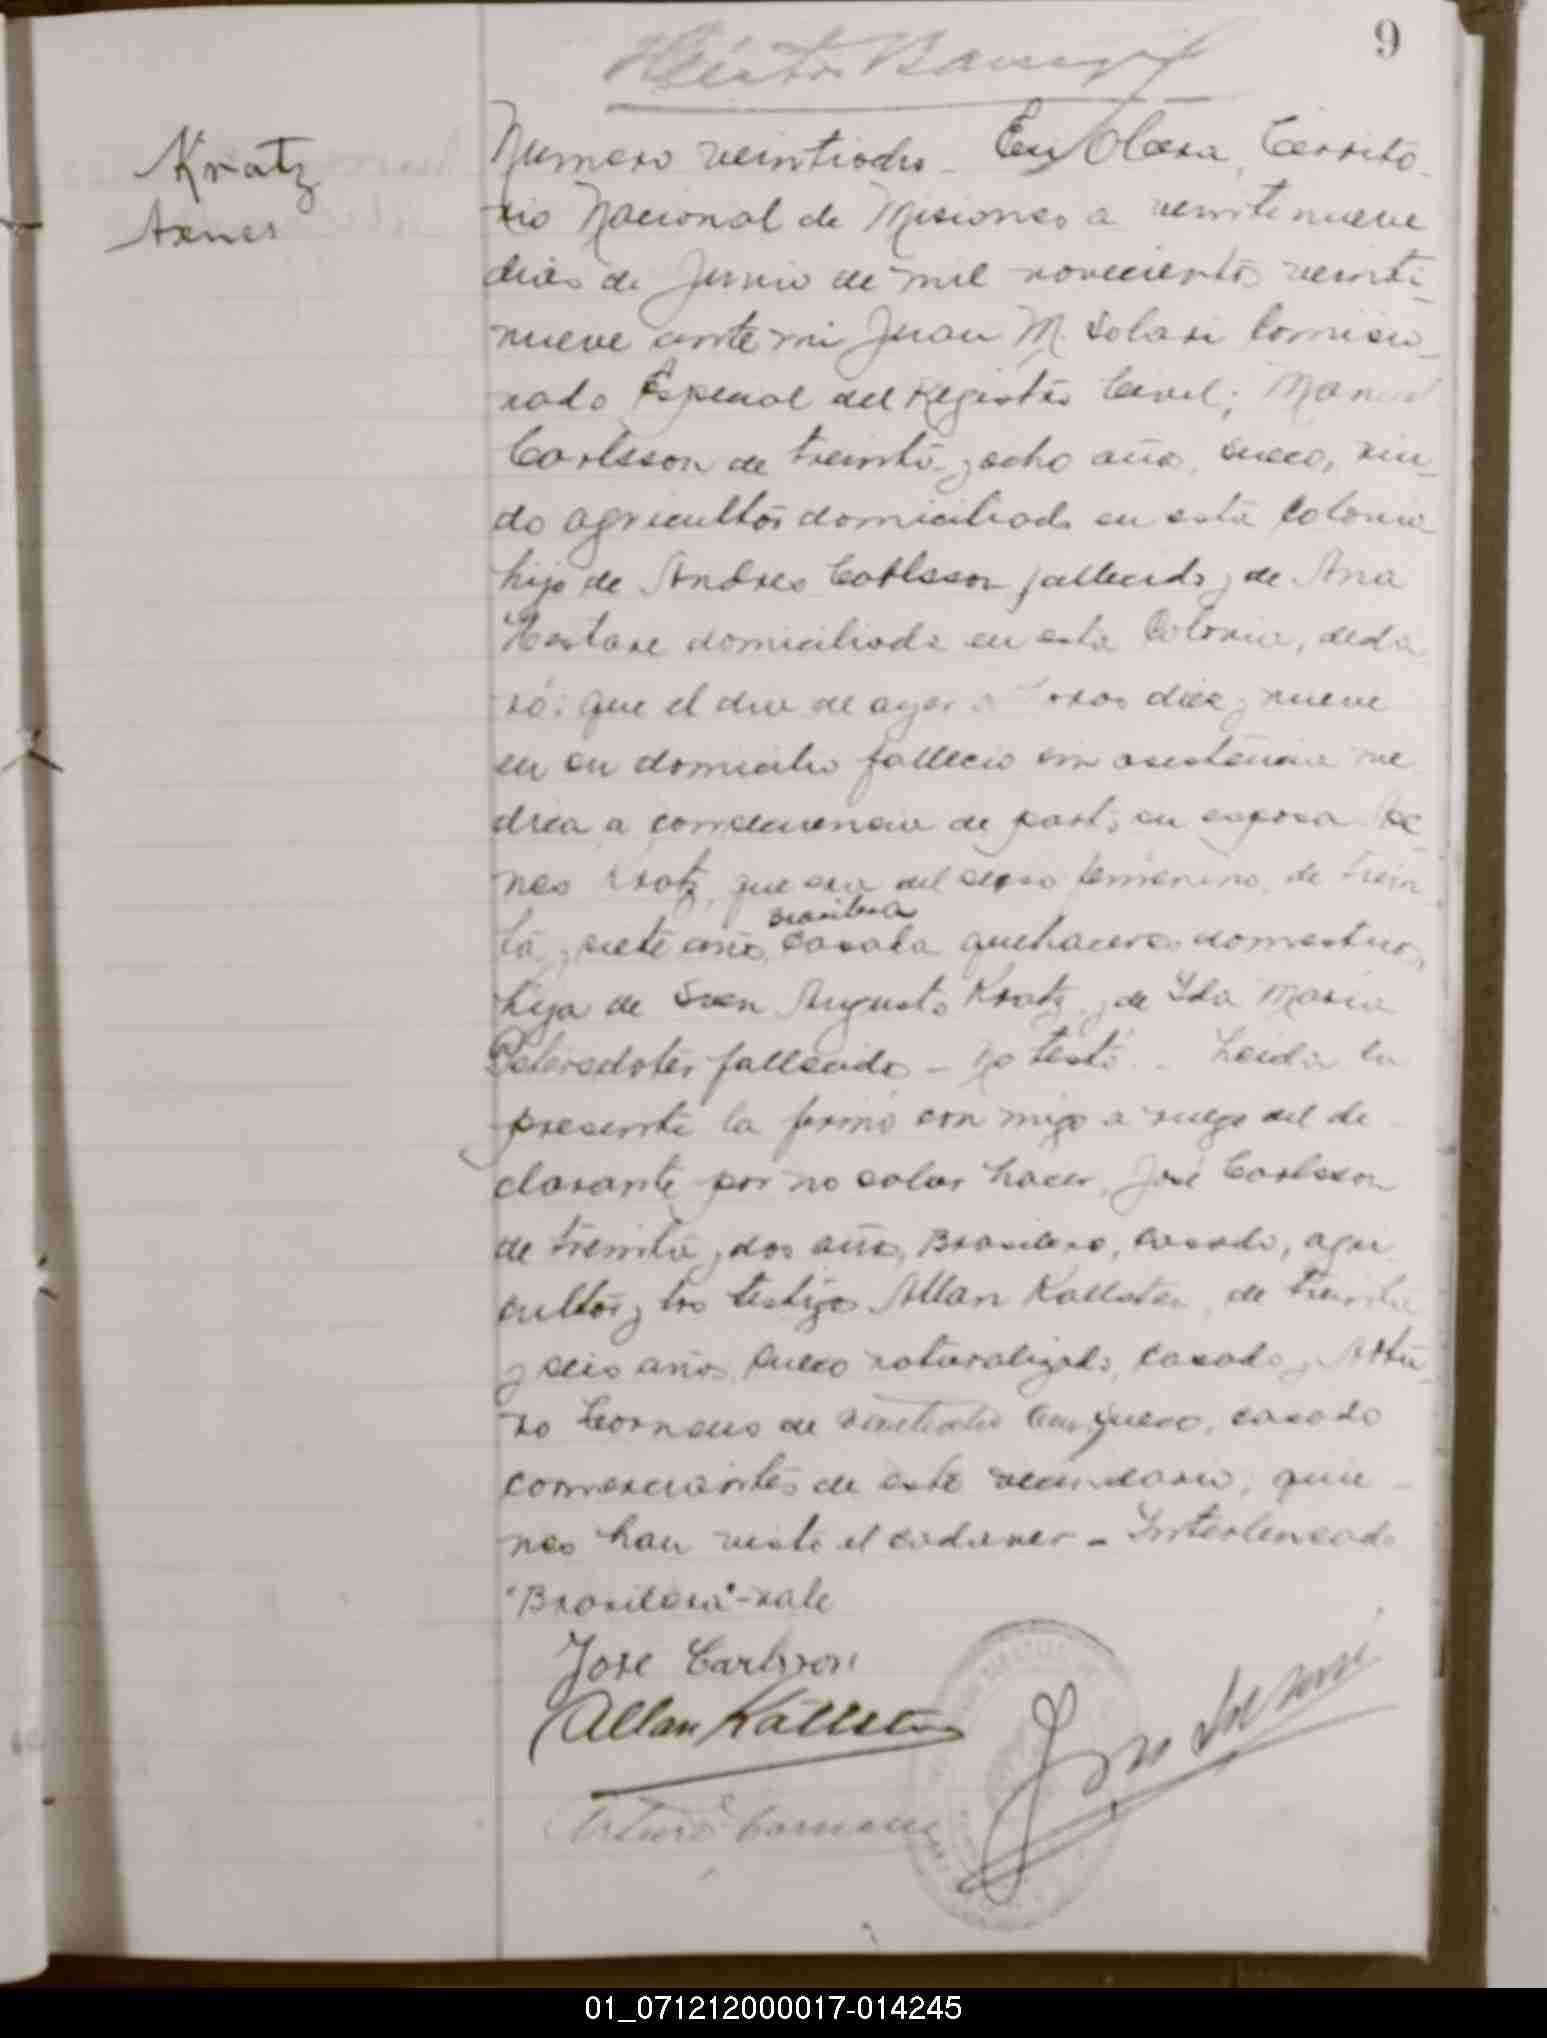 9
Kratz
Numero veintidos - En Obera, Territo-
rio Nacional de Misiones a veintinueve
dias de Junio de mil novecientos veinti-
nueve ante mi Juan M. Solari Comisio-
nado Especial del Registro Civil; Manuel
Carlsson de treinta y ocho años, sueco, viu-
do agricultor domiciliado en esta Colonia
hijo de Andres Carlsson fallecido y de Ana
domiciliada en esta Colonia, decla-
ró: que el dia de ayer a horas diez y nueve
en su domicilio fallecio sin asistencia me-
dica a consecuencia de parto su esposa
nes Kratz, que era del sexo femenino, de trein-
ta y siete años, Brasilera casada quehaceres domesticos,
hija de Sven Augusto Kratz y de Ida Maria
Petersdoter fallecidos - No testó. - Leida la
presente la firmó con migo a ruego del de-
clarante por no saber hacer, José Carlsson
de treinta y dos años, Brasilero, casado, agri-
cultor y los testigos Allan Kallsten, de treinta
y seis años, sueco naturalizado, casado y Artu-
ro de sueco, casado
comerciantes de este vecindario, quie-
nes han visto el cadaver - Interlineado
"Brasilera" - vale
Jose Carlsson
Allan Källsten
Arturo
01_071212000017-014245